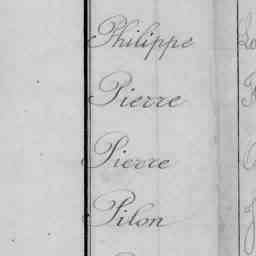 Philippe
Pierre
Pierre
Pilon